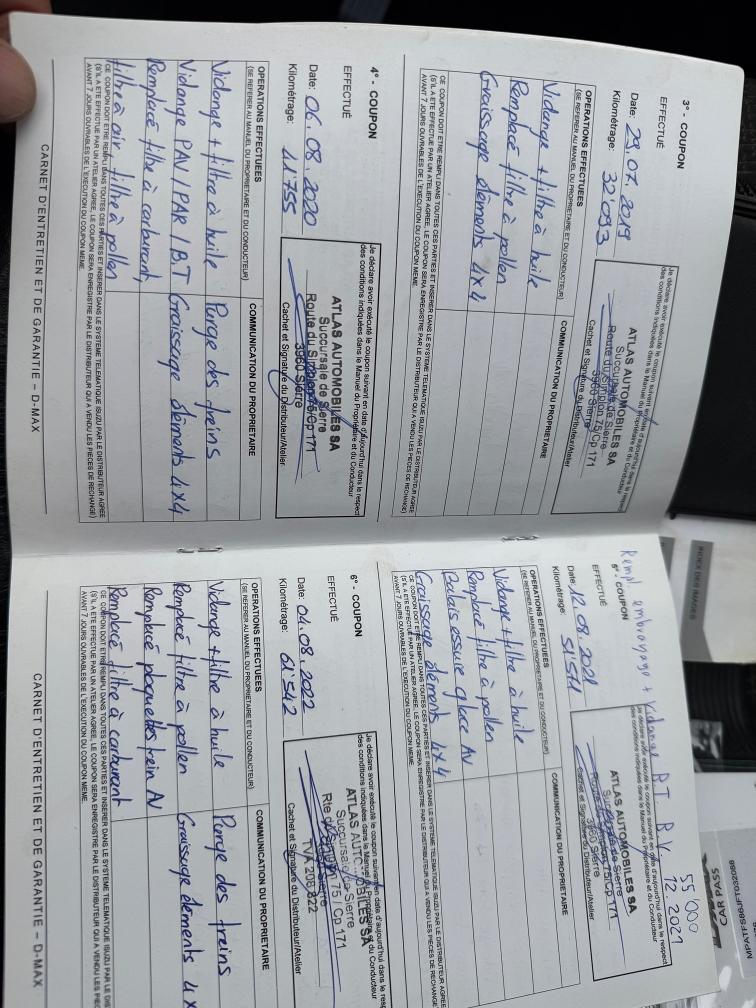 3° - COUPON
EFFECTUÉ
Date: 29.07.2019
Kilométrage: 32'093
Je déclare avoir exécuté le coupon suivant en date d'aujourd'hui dans le respect
des conditions indiquées dans le Manuel du Propriétaire et du Conducteur
ATLAS AUTOMOBILES SA
Succursale de Sierre
Route du Simplon 75/Cp 171
3960 Sierre
Cachet et Signature du Distributeur/Atelier
OPERATIONS EFFECTUEES
(SE REFERER AU MANUEL DU PROPRIETAIRE ET DU CONDUCTEUR)
COMMUNICATION DU PROPRIETAIRE
Vidange + filtre à huile
Remplacé filtre à pollen
Graissage éléments 4x4
CE COUPON DOIT ETRE REMPLI DANS TOUTES CES PARTIES ET INSERER DANS LE SYSTEME TELEMATIQUE ISUZU PAR LE DISTRIBUTEUR AGREE
(S'IL A ETE EFFECTUE PAR UN ATELIER AGREE, LE COUPON SERA ENREGISTRE PAR LE DISTRIBUTEUR QUI A VENDU LES PIECES DE RECHANGE)
AVANT 7 JOURS OUVRABLES DE L'EXECUTION DU COUPON MEME.
4° - COUPON
EFFECTUÉ
Date: 06.08.2020
Kilométrage: 41'755
Je déclare avoir exécuté le coupon suivant en date d'aujourd'hui dans le respect
des conditions indiquées dans le Manuel du Propriétaire et du Conducteur
ATLAS AUTOMOBILES SA
Succursale de Sierre
Route du Simplon 75/Cp 171
3960 Sierre
Cachet et Signature du Distributeur/Atelier
OPERATIONS EFFECTUEES
(SE REFERER AU MANUEL DU PROPRIETAIRE ET DU CONDUCTEUR)
COMMUNICATION DU PROPRIETAIRE
Vidange + filtre à huile Purge des freins
Vidange PAV / PAR / BT Graissage éléments 4x4
Remplacé filtre à carburant,
filtre à air + filtre à pollen
CE COUPON DOIT ETRE REMPLI DANS TOUTES CES PARTIES ET INSERER DANS LE SYSTEME TELEMATIQUE ISUZU PAR LE DISTRIBUTEUR AGREE
(S'IL A ETE EFFECTUE PAR UN ATELIER AGREE, LE COUPON SERA ENREGISTRE PAR LE DISTRIBUTEUR QUI A VENDU LES PIECES DE RECHANGE)
AVANT 7 JOURS OUVRABLES DE L'EXECUTION DU COUPON MEME.
CARNET D'ENTRETIEN ET DE GARANTIE – D-MAX
55 000
Rempl embrayage + Vidange BT B.V. 12 2021
5° - COUPON
EFFECTUÉ
Date: 12.08.2021
Kilométrage: 51'511
ATLAS AUTOMOBILES SA
3960 Sierre
Cachet et Signature du Distributeur/Atelier
OPERATIONS EFFECTUEES
(SE REFERER AU MANUEL DU PROPRIETAIRE ET DU CONDUCTEUR)
COMMUNICATION DU PROPRIETAIRE
Vidange + filtre à huile
Remplacé filtre à pollen
Balais essuie glace AV
Graissage éléments 4x4
CE COUPON DOIT ETRE REMPLI DANS TOUTES CES PARTIES ET INSERER DANS LE SYSTEME TELEMATIQUE ISUZU PAR LE DISTRIBUTEUR AGREE
(S'IL A ETE EFFECTUE PAR UN ATELIER AGREE, LE COUPON SERA ENREGISTRE PAR LE DISTRIBUTEUR QUI A VENDU LES PIECES DE RECHANGE
AVANT 7 JOURS OUVRABLES DE L'EXECUTION DU COUPON MEME.
6° - COUPON
EFFECTUÉ
Date: 04.08.2022
Kilométrage: 61'542
Je déclare avoir exécuté le coupon suivant en date d'aujourd'hui dans le res
des conditions indiquées dans le Manuel du Propriétaire et du Conducteur
ATLAS AUTOMOBILES SA
Succursale de Sierre
Rte du Simplon 75 / Cp 171
TVA 208 822
Cachet et Signature du Distributeur/Atelier
OPERATIONS EFFECTUEES
(SE REFERER AU MANUEL DU PROPRIETAIRE ET DU CONDUCTEUR)
COMMUNICATION DU PROPRIETAIRE
Vidange + filtre à huile Purge des freins
Remplacé filtre à pollen Graissage éléments 4x
Remplacé plaquettes frein AV
Remplacé filtre à carburant
CE COUPON DOIT ETRE REMPLI DANS TOUTES CES PARTIES ET INSERER DANS LE SYSTEME TELEMATIQUE ISUZU PAR LE DIS
(S'IL A ETE EFFECTUE PAR UN ATELIER AGREE, LE COUPON SERA ENREGISTRE PAR LE DISTRIBUTEUR QUI A VENDU LES PIEC
AVANT 7 JOURS OUVRABLES DE L'EXECUTION DU COUPON MEME.
CARNET D'ENTRETIEN ET DE GARANTIE – D-MAX
INDEX DES IMAGES
CAR PASS